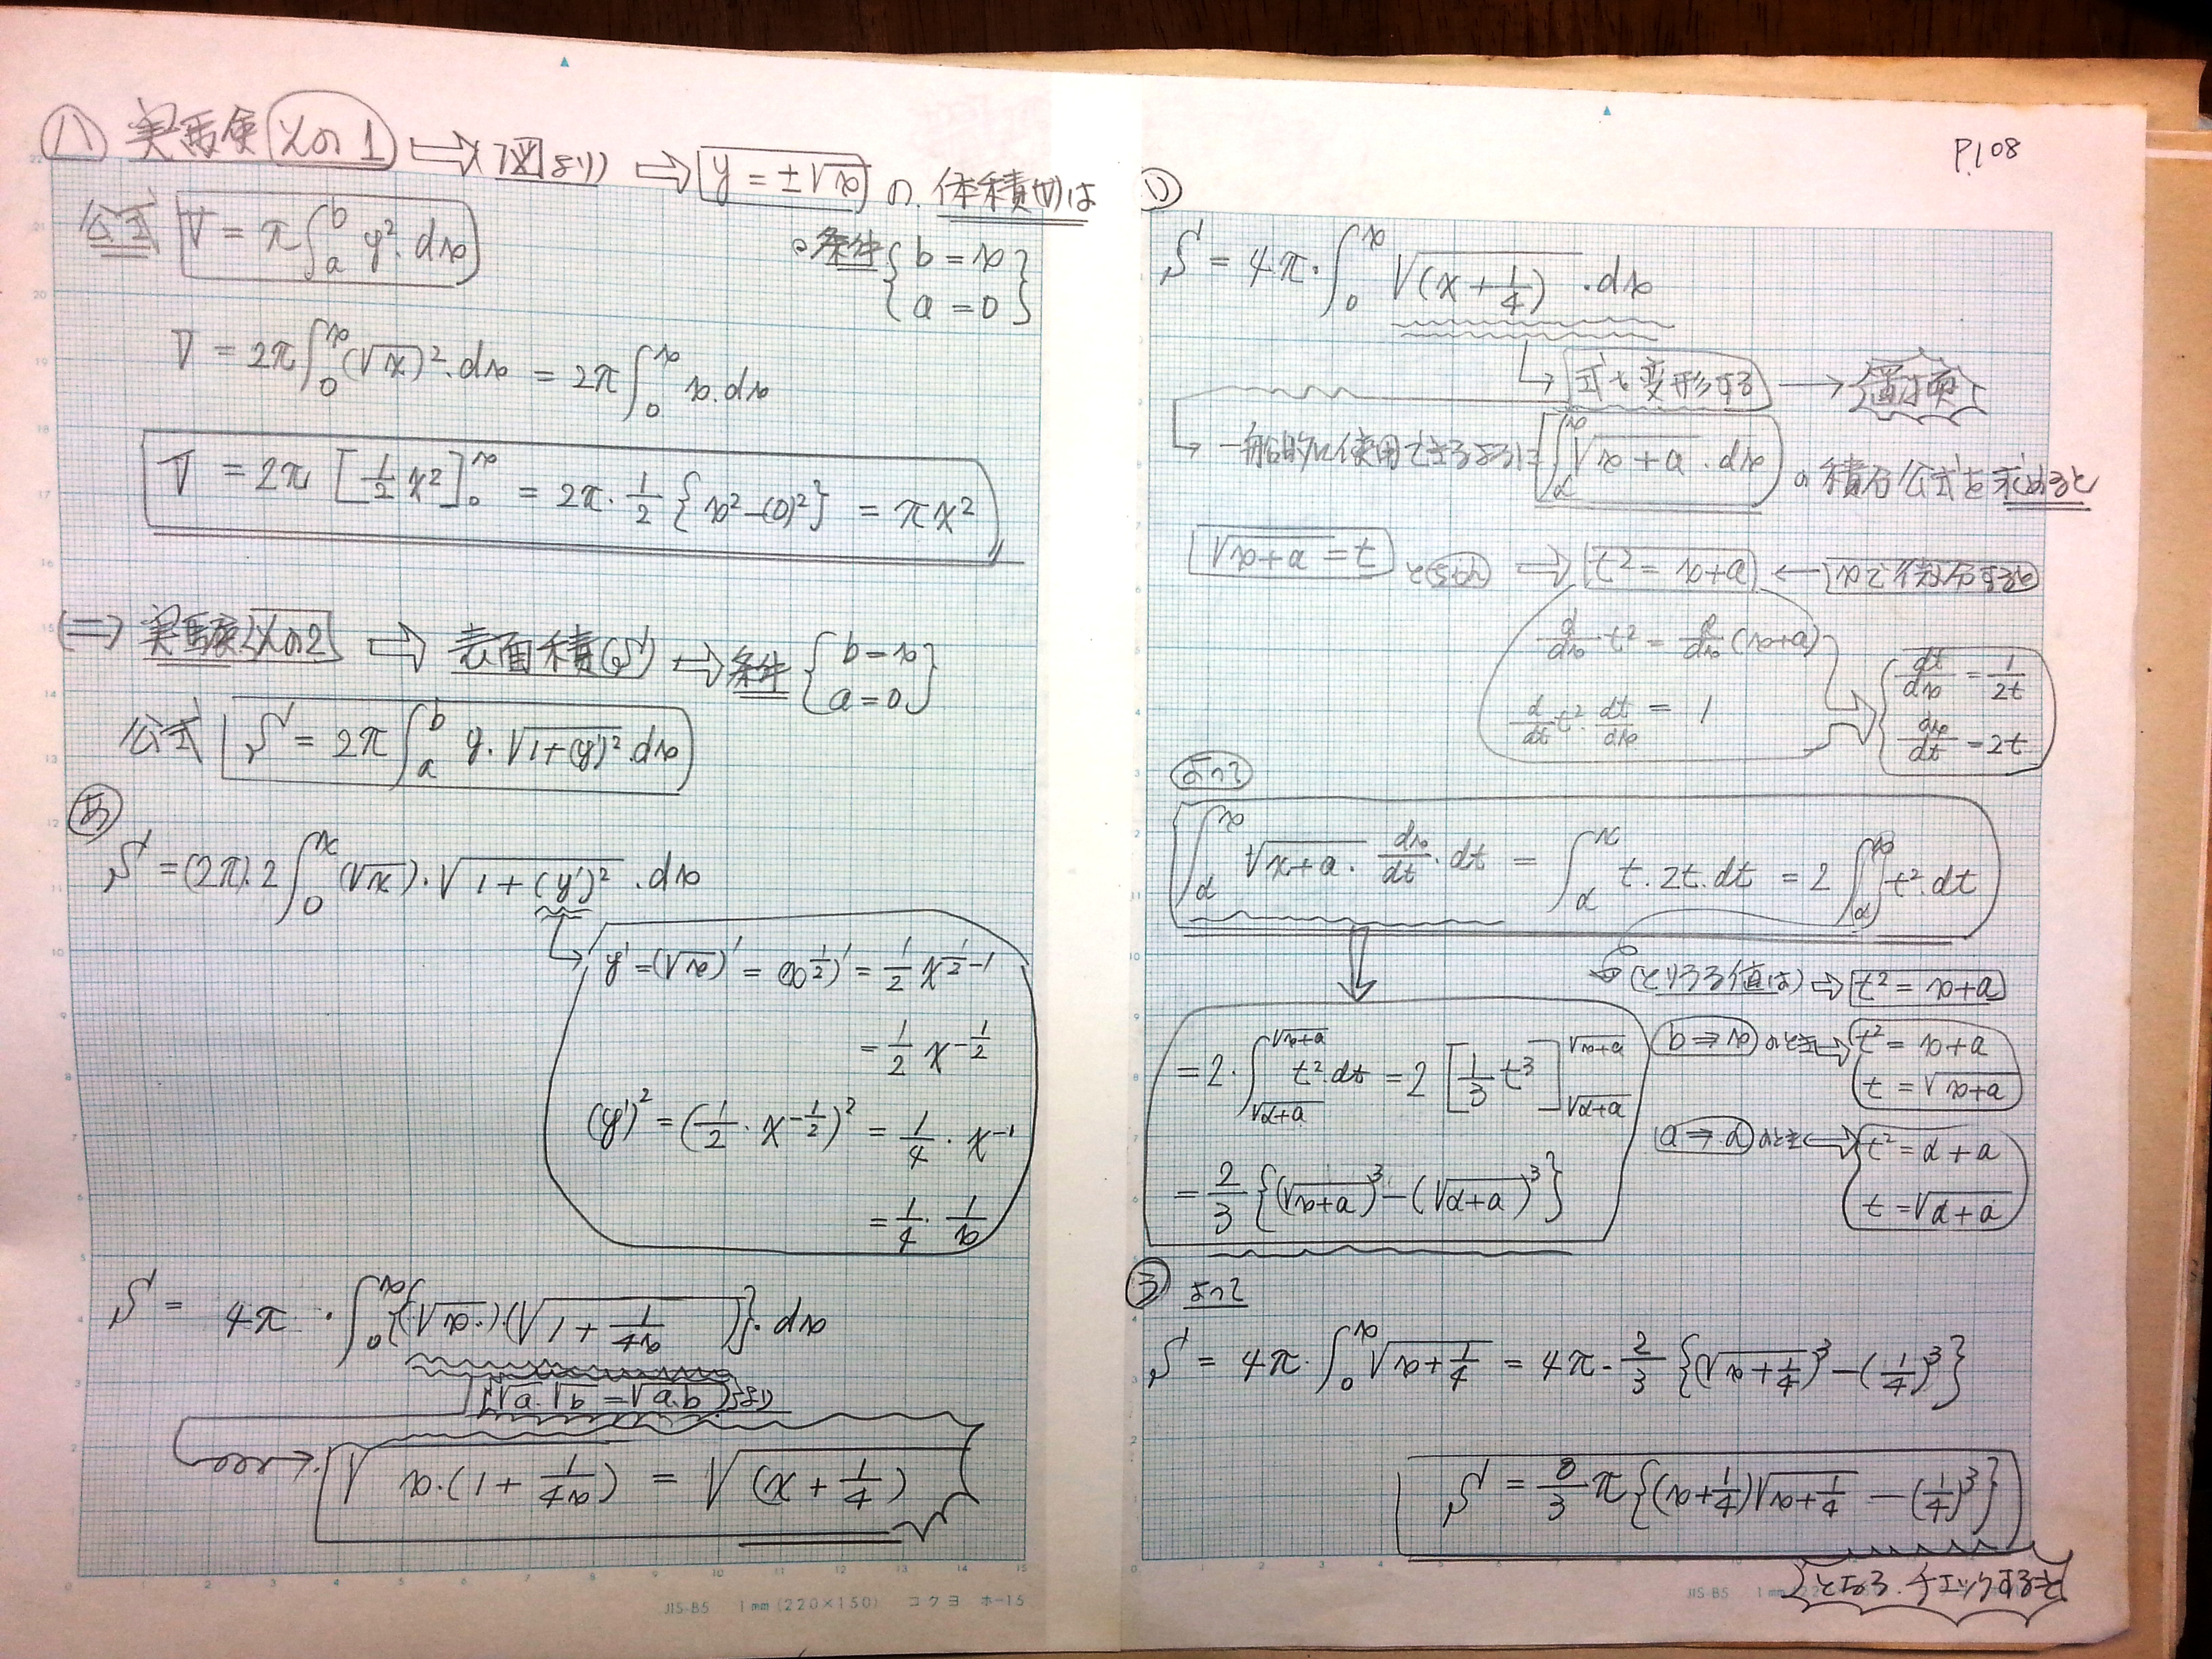 (ハ) 実験その1 ⇒ 図より ⇒ y = ±√x の 体積(V)は
公式 V = π∫_a^b y²・dx
条件 { b = x
a = 0 }
V = 2π∫_0^x (√x)²・dx = 2π∫_0^x x・dx
V = 2π [1/2 x²]_0^x = 2π・1/2 {x² - (0)²} = πx²
(ニ) 実験その2 ⇒ 表面積(S) ⇒ 条件 { b = x
a = 0 }
公式 S = 2π∫_a^b y・√(1+(y')²)・dx
あ
S = (2π)・2∫_0^x (√x)・√(1+(y')²)・dx
y' = (√x)' = (x^(1/2))' = 1/2 x^(1/2 - 1)
= 1/2 x^(-1/2)
(y')² = (1/2・x^(-1/2))² = 1/4・x^(-1)
= 1/4・1/x
S = 4π・∫_0^x {(√x)・(√(1 + 1/4x))}・dx
(√a・√b = √a・b)より
√x・(1 + 1/4x) = √(x + 1/4)
P.108
S = 4π・∫_0^x √(x + 1/4)・dx
式を変形する → 置換
一般的に使用できるように ∫_α^x √(x+a)・dx の積分公式を求めると
√(x+a) = t とすると ⇒ t² = x+a ← xで微分すると
d/dx t² = d/dx (x+a)
d/dt t²・dt/dx = 1
dt/dx = 1/2t
dx/dt = 2t
よって
∫_α^x √(x+a)・dx/dt・dt = ∫_α^x t・2t・dt = 2∫_α^x t²・dt
(とりうる値は) ⇒ t² = x+a
b ⇒ x のとき ⇒ t² = x+a
t = √(x+a)
a ⇒ α のとき ⇒ t² = α+a
t = √(α+a)
= 2・∫_√(α+a)^√(x+a) t²・dt = 2 [1/3 t³]_√(α+a)^√(x+a)
= 2/3 {(√(x+a))³ - (√(α+a))³}
よって
S = 4π・∫_0^x √(x + 1/4) = 4π・2/3 {(√(x + 1/4))³ - (1/4)³}
S = 8/3 π {(x + 1/4)√(x + 1/4) - (1/4)³}
となる. チェックすると
JIS-B5 1mm (220×150) コクヨ ホ-15
JIS-B5 1mm